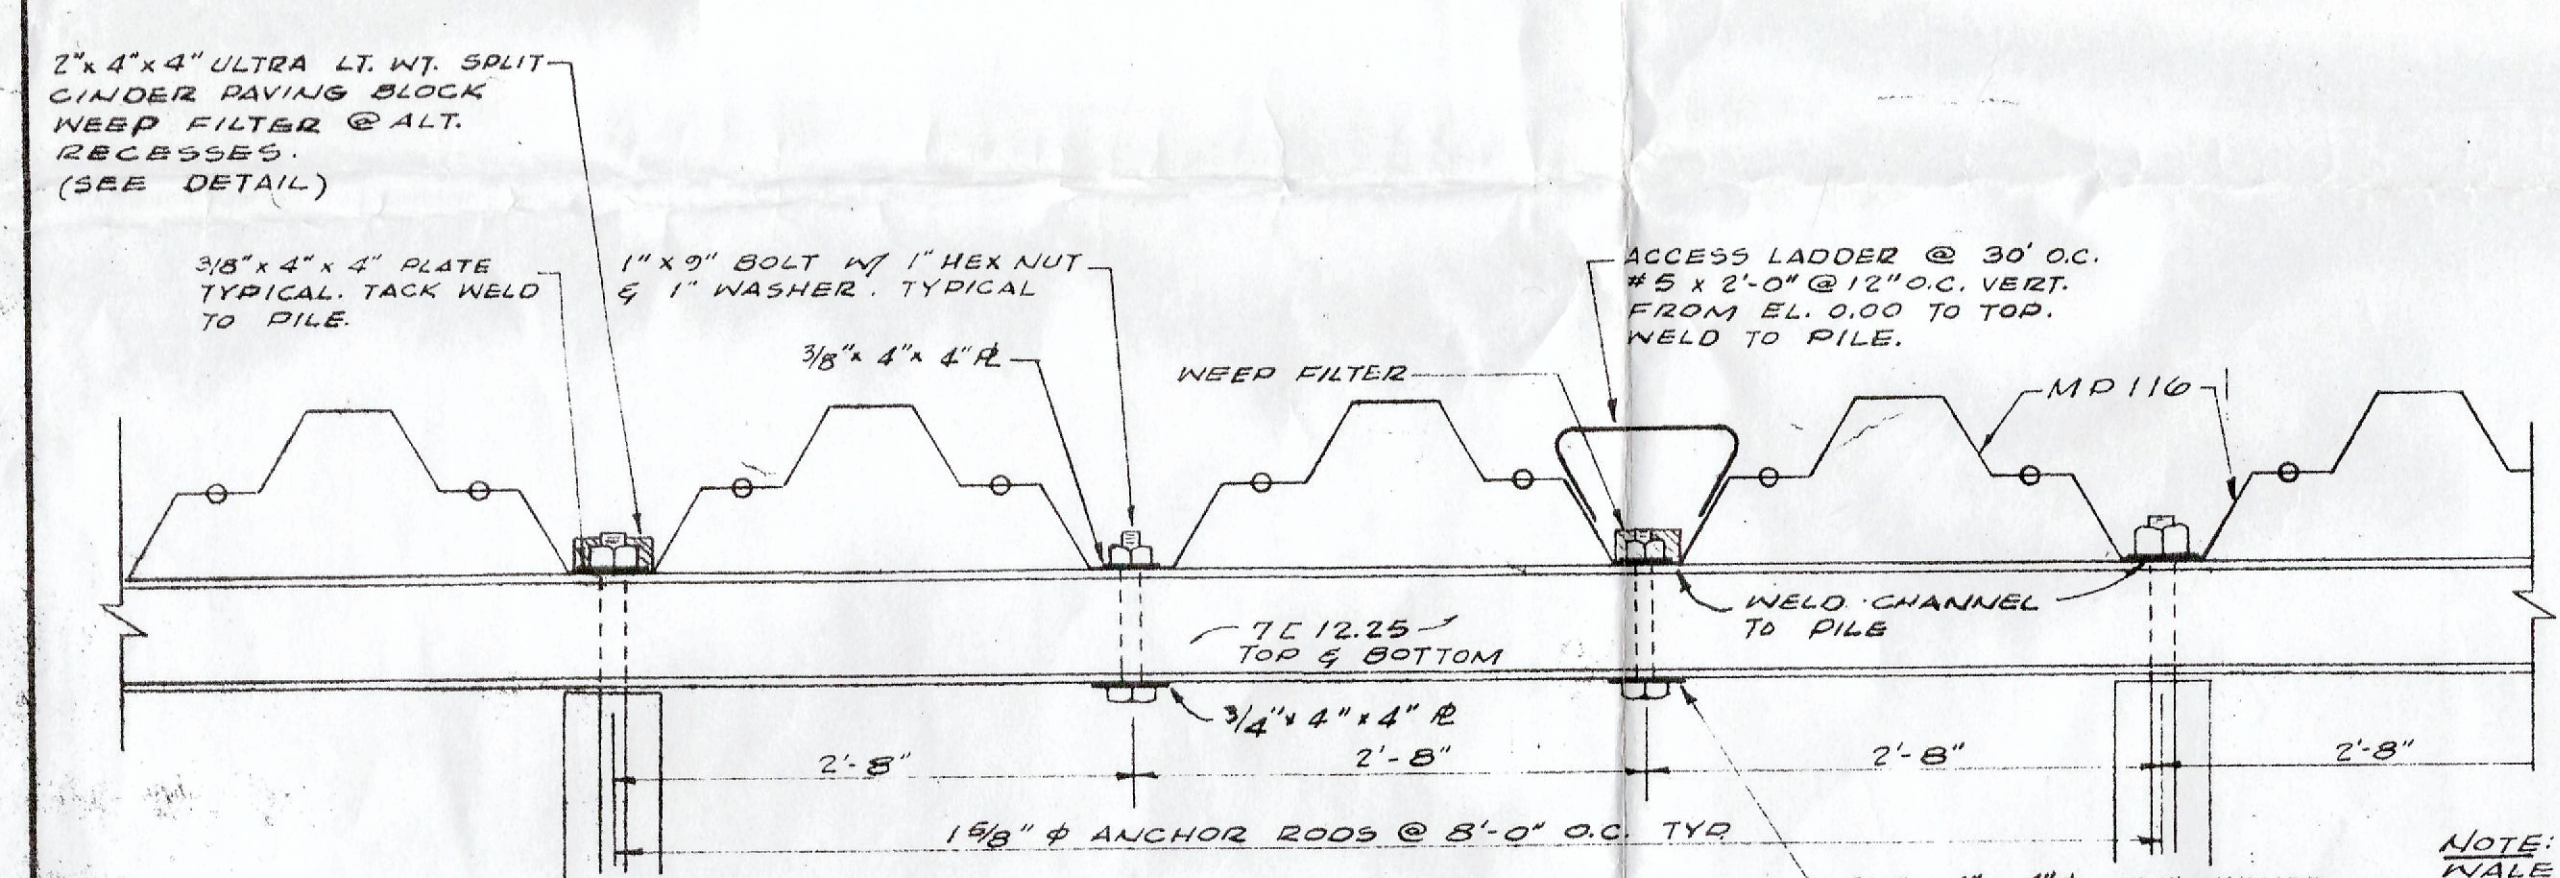 2"x 4"x 4" ULTRA LT. WT. SPLIT
CINDER PAVING BLOCK
WEEP FILTER @ ALT.
RECESSES.
(SEE DETAIL)
3/8" x 4" x 4" PLATE
TYPICAL. TACK WELD
TO PILE.
1" X 9" BOLT W/ 1" HEX NUT
& 1" WASHER. TYPICAL
3/8"x 4"x 4" PL
WEEP FILTER
ACCESS LADDER @ 30' O.C.
#5 x 2'-0" @ 12" O.C. VERT.
FROM EL. 0.00 TO TOP.
WELD TO PILE.
MP 116
WELD CHANNEL
TO PILE
7 [ 12.25
TOP & BOTTOM
3/4"x 4" x 4" PL
2'-8"
2'-8"
2'-8"
2'-8"
1 5/8" ϕ ANCHOR RODS @ 8'-0" O.C. TYP.
NOTE:
WALE